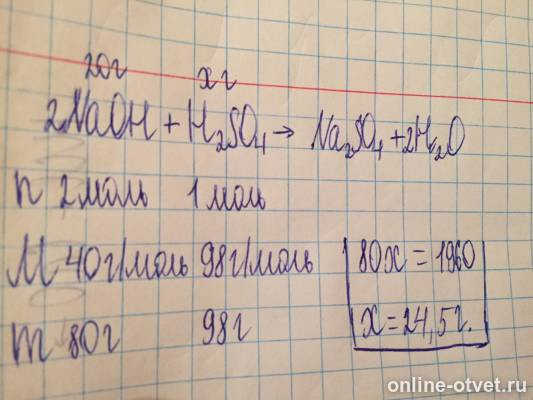 20г xг
2NaOH + H₂SO₄ → Na₂SO₄ + 2H₂O
n 2 моль 1 моль
M 40г/моль 98г/моль 80x = 1960
m 80г 98г x = 24,5г.
online-otvet.ru